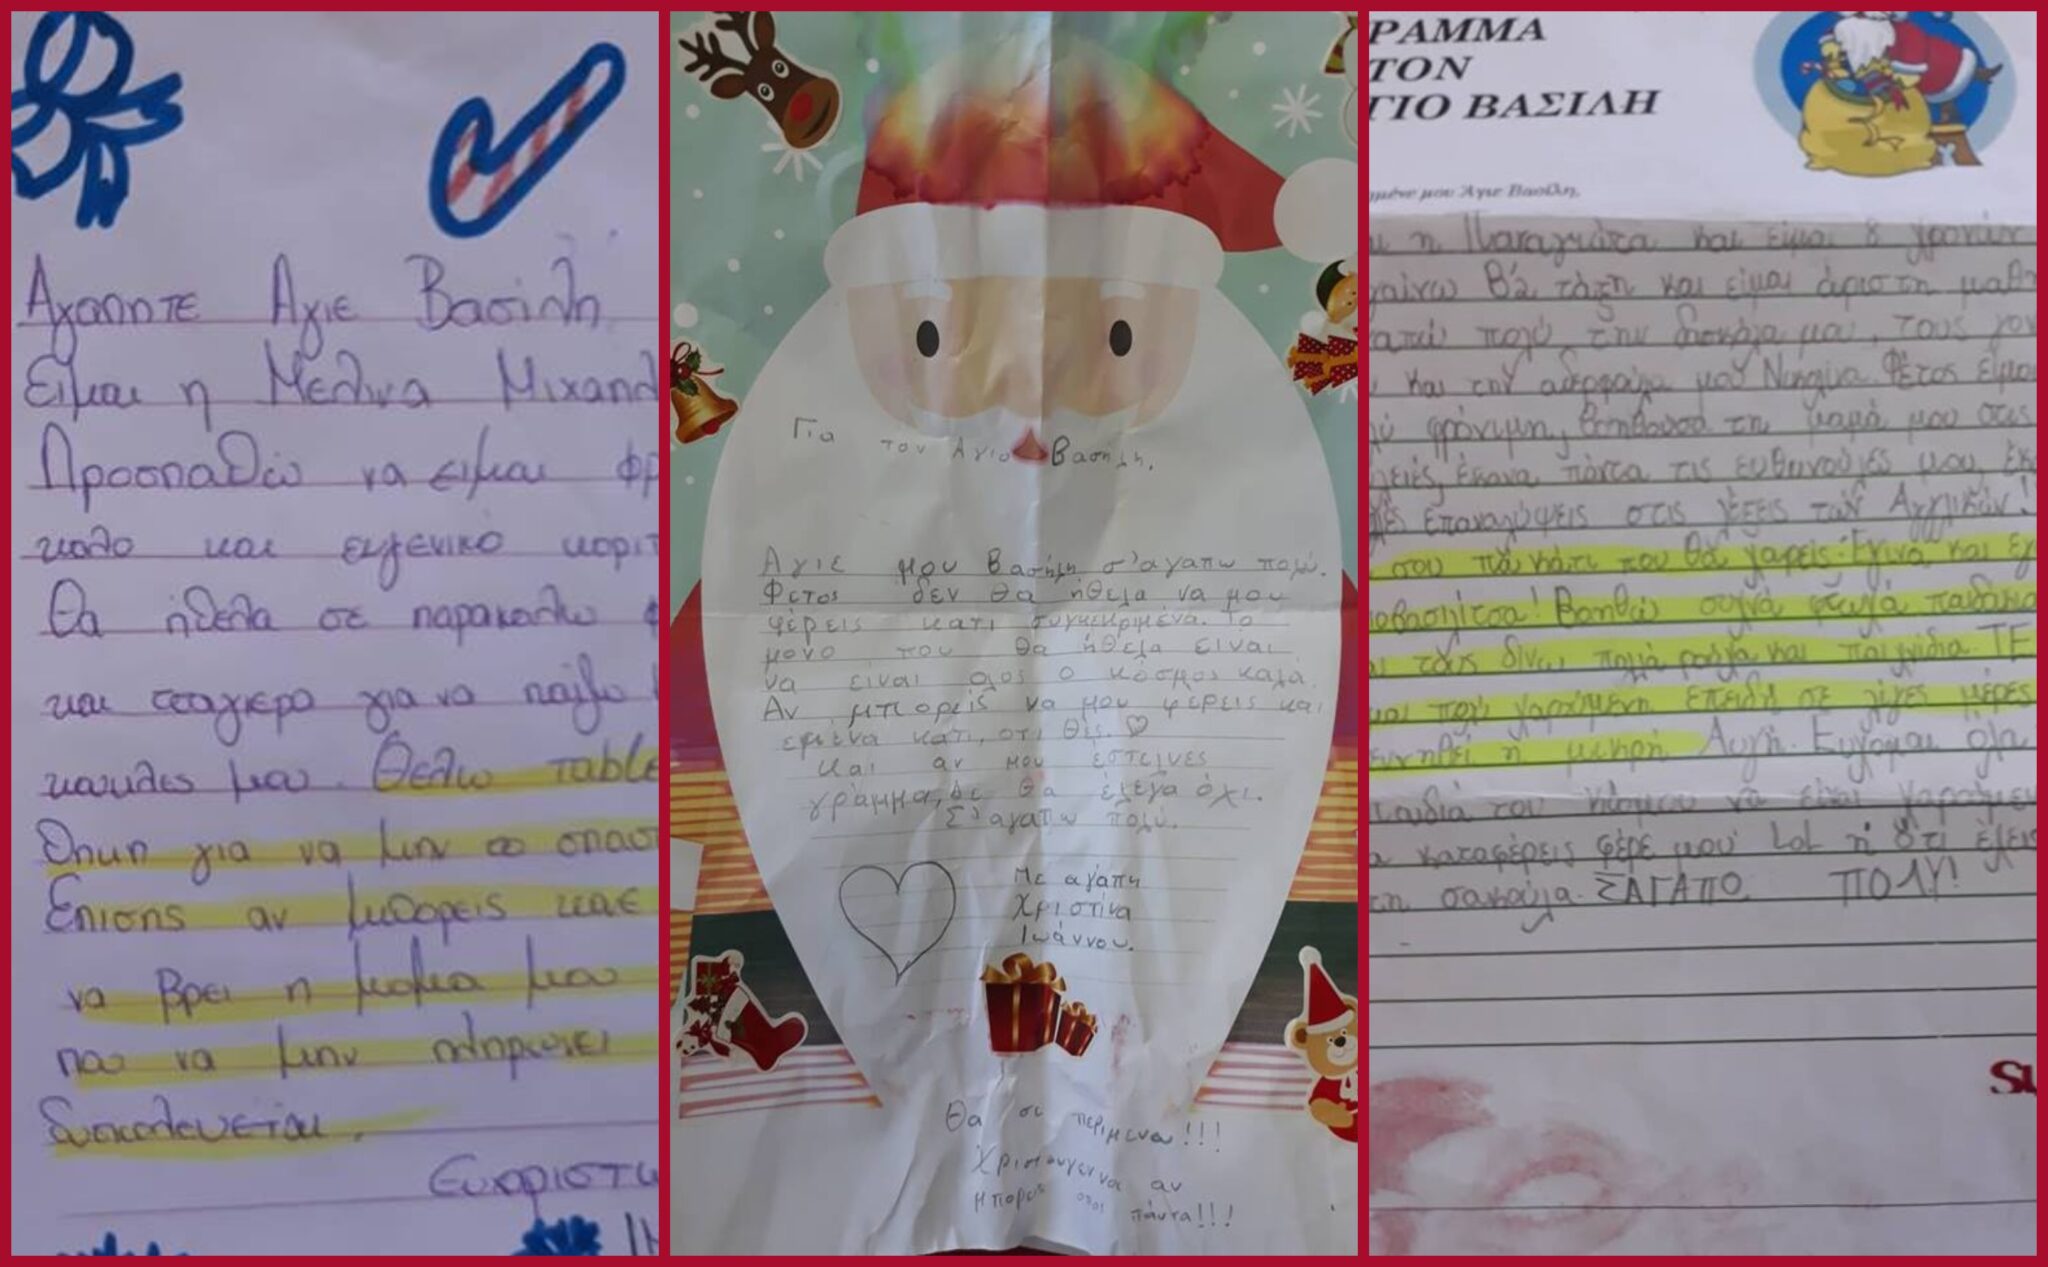 Αγαπητε Αγιε Βασίλη
Ειμαι η Μελινα Μιχαηλ
Προσπαθώ να ειμαι φρ
καλο και ευγενικό κοριτ
Θα ήθελα σε παρακαλω φ
και σταγερο για να παίξω
κουκλες μου. Θελω table
Θηκη για να μην το σπασ
Επισης αν μπορεις κανε
να βρει η μαμα μου
που να μην πληρωνει
δυσκολευεται.
Ευχαριστω
Για τον Αγιο Βασήλη.
Αγιε μου Βασήλη σ'αγαπω πολύ.
Φετος δεν θα ήθελα να μου
φέρεις κατι συγκεκριμένα. Το
μονο που θα ήθελα ειναι
να είναι ολος ο κόσμος καλά.
Αν μπορείς να μου φερεις και
εμένα κατι, οτι θες. ♡
Και αν μου έστελνες
γράμμα, δε θα έλεγα όχι.
Σ'αγαπω πολύ.
Με αγάπη
Χριστίνα
Ιωάννου.
Θα σε περιμενω!!!
Χριστουγεννα αν
μπορεις πάντα!!!
ΡΑΜΜΑ
ΤΟΝ
ΓΙΟ ΒΑΣΙΛΗ
ημένε μου Άγιε Βασίλη,
ι η Παναγιώτα και είμαι 8 χρονών
γαίνω Β'α τάξη και είμαι άριστη μαθ
απώ πολύ την δασκάλα μου, τους γον
υ και την αδερφούλα μου Νικολίνα. Φέτος είμαι
ύ φρόνιμη, βοηθούσα τη μαμά μου στις
λειές, έκανα πάντα τις ευθηνούλες μου, έκα
ές επαναλήψεις στις λέξεις των Αγγλικών!
σου πω κάτι που θα χαρείς. Έγινα και εγ
ιοβασιλίτσα! Βοηθώ συχνά φτωχά παιδάκια
ι τους δίνω πολλά ρούχα και παιχνίδια. ΤΕ
μαι πολύ χαρούμενη επειδή σε λίγες μέρες
εννηθεί η μικρή Αυγή. Εύχομαι όλα
παιδιά του κόσμου να είναι χαρούμεν
α καταφέρεις φέρε μου Lol ή ό,τι έχεις
τη σακούλα. ΣΑΓΑΠΟ ΠΟΛΥ!